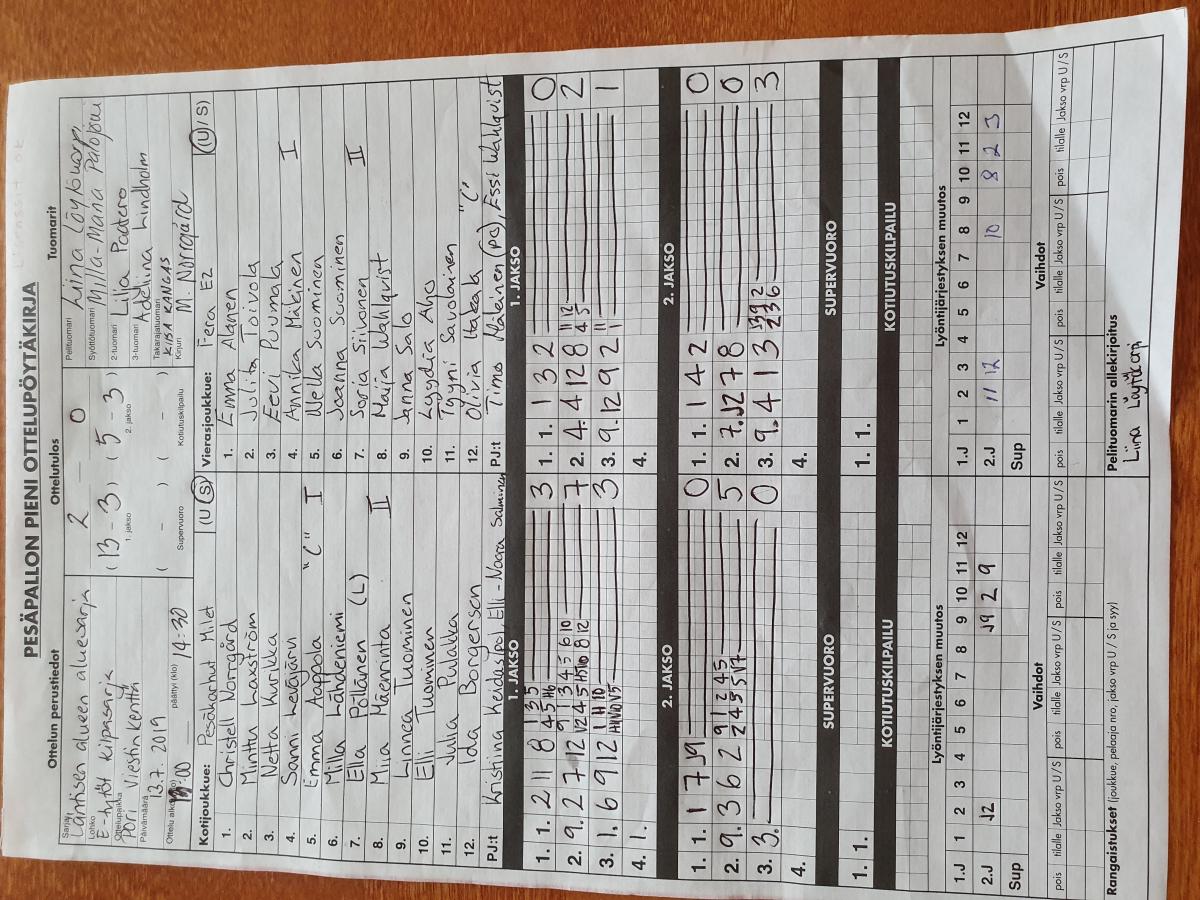 PESÄPALLON PIENI OTTELUPÖYTÄKIRJA
Ottelun perustiedot
Sarja
Läntisen alueen aluesarja
Lohko
E-tytöt kilpasarja
Ottelupaikka
Pori Viestin Kenttä
Päivämäärä
13.7. 2019
Ottelu alkoi (klo) :00 päättyi (klo) 14:30
Ottelutulos
2 - 0
(13 - 3) (5 - 3)
1. jakso 2. jakso
( - ) ( - )
Supervuoro Kotiutuskilpailu
Tuomarit
Pelituomari Liina Löytökorpi
Syöttötuomari Milla-Maria Palojoki
2-tuomari Lilla Paatero
3-tuomari Adeliina Lindholm
Takarajatuomari KIIA KANGAS
Kirjuri M. Norrgård
Kotijoukkue: Pesäkarhut Milet (U/S)
1. Christell Norrgård
2. Minttu Laxström
3. Netta Kurikka
4. Sanni Leväjärvi
5. Emma Aappola "C" I
6. Milla Lähdeniemi
7. Ella Pöllänen (L)
8. Mia Mäenrinta II
9. Linnea Tuominen
10. Elli Tuominen
11. Julia Pulakka
12. Ida Borgersen
PJ:t Kristiina Keidas (pj) Elli-Noora Salminen
Vierasjoukkue: Fera E2 (U/S)
1. Emma Alanen
2. Julita Toivola
3. Eevi Puumala
4. Annika Mäkinen I
5. Wella Suominen
6. Joanna Suominen
7. Sonja Siivonen II
8. Maija Wahlquist
9. Janna Salo
10. Lyydia Aho
11. Tyyni Savolainen
12. Olivia Itäkala "C"
PJ:t Timo Makinen (PJ), Essi Wahlquist
1. JAKSO
1. 1. 2 11 8 3
2. 9. 2 7 12 7
3. 1. 6 9 12 3
4. 1.
1. JAKSO
1. 1. 1 3 2 0
2. 4. 4 12 8 2
3. 9. 12 9 2 1
4.
2. JAKSO
1. 1. 1 7 J9 0
2. 9. 3 6 2 5
3. 3. 0
4.
2. JAKSO
1. 1. 1 4 2 0
2. 7. J2 7 8 0
3. 9. 4 1 3 3
4.
SUPERVUORO
1. 1.
SUPERVUORO
1. 1.
KOTIUTUSKILPAILU
KOTIUTUSKILPAILU
Lyöntijärjestyksen muutos
1.J 1 2 3 4 5 6 7 8 9 10 11 12
2.J J2 J9 2 9
Sup
Lyöntijärjestyksen muutos
1.J 1 2 3 4 5 6 7 8 9 10 11 12
2.J 11 12 10 8 2 3
Sup
Vaihdot
pois tilalle Jakso vrp U/S pois tilalle Jakso vrp U/S pois tilalle Jakso vrp U/S
Vaihdot
pois tilalle Jakso vrp U/S pois tilalle Jakso vrp U/S pois tilalle Jakso vrp U/S
Rangaistukset (joukkue, pelaaja nro, jakso vrp U / S ja syy)
Pelituomarin allekirjoitus
Liina Löytökorpi